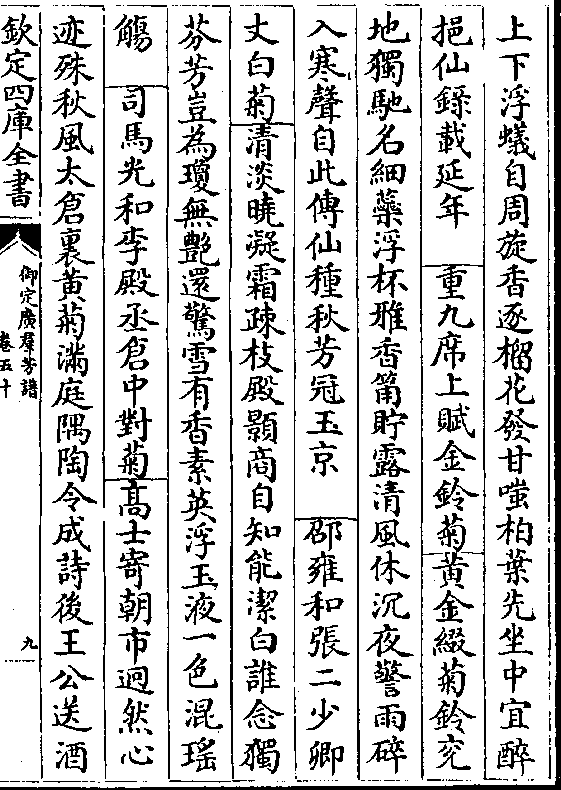 上下浮蟻自周旋香逐榴花發甘嗤柏葉先坐中宜醉
挹仙錄載延年　重九席上賦金鈴菊黃金綴菊鈴兖
地獨馳名細蘂浮杯雅香筩貯露清風休沉夜警雨碎
入寒聲自此傳仙種秋芳冠玉京　邵雍和張二少卿
丈白菊清淡曉凝霜疎枝殿顥商自知能潔白誰念獨
芬芳豈為瓊無艶還驚雪有香素英浮玉液一色混瑤
觴　司馬光和李殿丞倉中對菊高士寄朝市迥然心
迹殊秋風太倉裏黃菊滿庭隅陶令成詩後王公送酒
欽定四庫全書
御定廣羣芳譜
卷五十
九